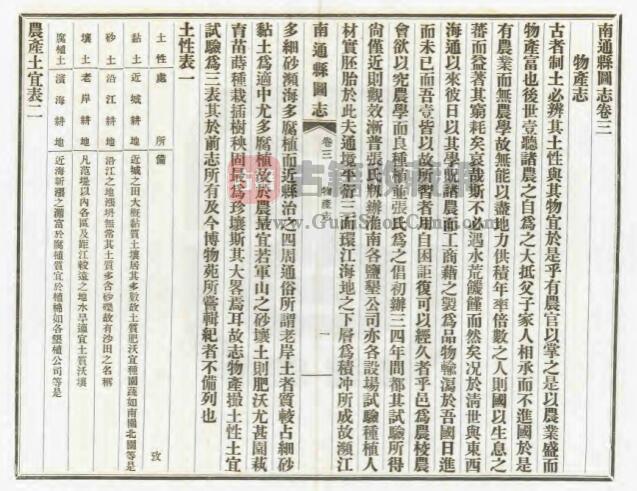 南通縣圖志卷三
物產志
古者制土必辨其土性與其物宜於是乎有農官以掌之是以農業盛而
物產富也後世壹聽諸農之自為之大抵父子家人相承而不進國於是
有農業而無農學故無能以盡地力供積年率倍數之人則國以生息之
蕃而益著其窮耗矣哀哉斯不必遇水荒饑饉而然矣况於清世與東西
海通以來彼日以其學貺諸農而工商藉之製為品物輸瀉於吾國日進
而未已而吾壹皆以故所習者用自困詎復可以經久者乎邑為農校農
會欲以究農學而良種植
張氏為之倡初辦三四年間都其試驗所得
尚僅近則觀效漸普張氏
辦淮南各鹽墾公司亦各設場試驗種植人
材實胚胎於此夫通境平衍三面環江海地之下層為積沖所成故瀕江
南通縣圖志
卷三 物產志
一
多細砂瀕海多腐植而近縣治之四周通俗所謂老岸土者質較占細砂
黏土為適中尤多腐植故於農最宜若軍山之砂壤土則肥沃尤甚園蓺
育苗蒔種栽插樹秧固最為珍壤斯其大畧焉耳故志物產撮土性土宜
試驗為三表其於前志所有及今博物苑所嘗輯紀者不備列也
土性表一
土性 處所 備攷
黏土 近城耕地 近城之田大概黏質土壤居其多數故土質肥沃宜種園蔬如南園北園等是
砂土 沿江耕地 沿江之地漲坍無常其土質多含砂礫故有沙田之名稱
壤土 老岸耕地 凡范堤以內各區及距江較遠之地水旱適宜土質沃壤
腐植土 濱海耕地 近海新漲之灘富於腐植質宜於植棉如各墾植公司等是
農產土宜表二